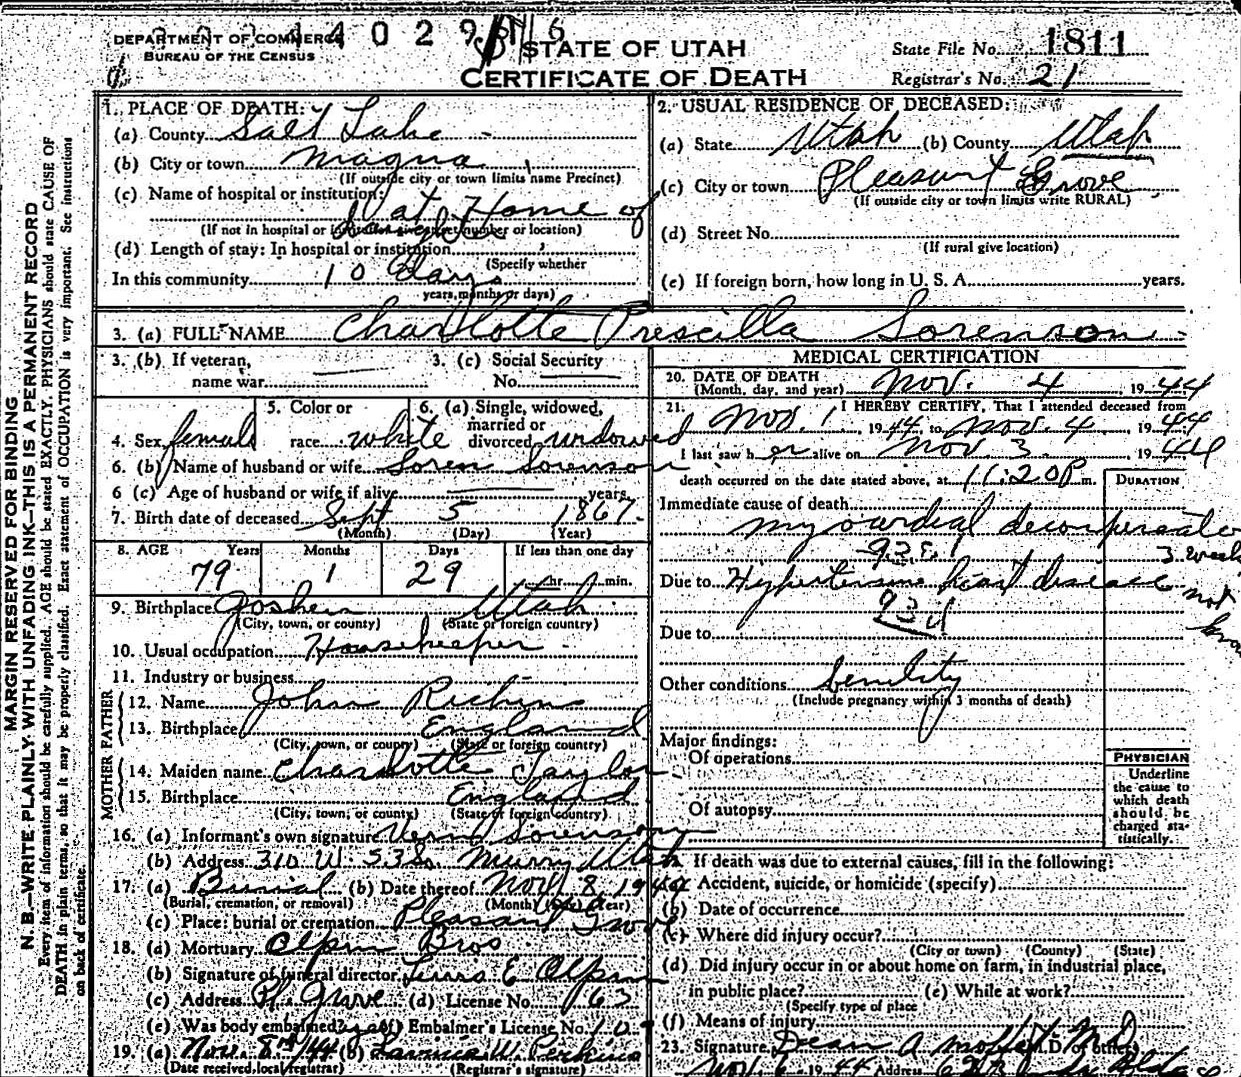 DEPARTMENT OF COMMERCE
BUREAU OF THE CENSUS
4 4 0 2 9
STATE OF UTAH
CERTIFICATE OF DEATH
State File No. 1811
Registrar's No. 21
MARGIN RESERVED FOR BINDING
N. B.—WRITE PLAINLY, WITH UNFADING INK—THIS IS A PERMANENT RECORD
Every item of information should be carefully supplied. AGE should be stated EXACTLY. PHYSICIANS should state CAUSE OF
DEATH in plain terms, so that it may be properly classified. Exact statement of OCCUPATION is very important. See instructions
on back of certificate.
1. PLACE OF DEATH:
(a) County Salt Lake
(b) City or town magna
(If outside city or town limits name Precinct)
(c) Name of hospital or institution:
at Home of
daughter
(If not in hospital or institution give street number or location)
(d) Length of stay: In hospital or institution
(Specify whether
In this community 10 days
years, months or days)
2. USUAL RESIDENCE OF DECEASED:
(a) State Utah (b) County Utah
(c) City or town Pleasant Grove
(If outside city or town limits write RURAL)
(d) Street No.
(If rural give location)
(e) If foreign born, how long in U. S. A. years.
3. (a) FULL NAME Charllotte Prescilla Sorenson
3. (b) If veteran,
name war
3. (c) Social Security
No.
4. Sex female
5. Color or
race white
6. (a) Single, widowed,
married or
divorced widowed
6. (b) Name of husband or wife Soren Sorenson
6 (c) Age of husband or wife if alive years
7. Birth date of deceased Sept 5 1867
(Month) (Day) (Year)
8. AGE Years Months Days If less than one day
79 1 29 hr. min.
9. Birthplace Goshen Utah
(City, town, or county) (State or foreign country)
10. Usual occupation Housekeeper
11. Industry or business
FATHER
12. Name John Richins
13. Birthplace England
(City, town, or county) (State or foreign country)
MOTHER
14. Maiden name Charllotte Taylor
15. Birthplace England
(City, town, or county) (State or foreign country)
16. (a) Informant's own signature Vern Sorenson
(b) Address 310 W. 53 So. Murry Utah
17. (a) Burial (b) Date thereof Nov 8, 1944
(Burial, cremation, or removal) (Month) (Day) (Year)
(c) Place: burial or cremation Pleasant Grove
18. (a) Mortuary Olpin Bros
(b) Signature of funeral director E Olpin
(c) Address Pl. Grove (d) License No. 163
(e) Was body embalmed? yes (f) Embalmer's License No.
19. (a) Nov. 8th/44 (b) W. Perkins
(Date received local registrar) (Registrar's signature)
MEDICAL CERTIFICATION
20. DATE OF DEATH
(Month, day, and year) Nov. 4, 1944
21. I HEREBY CERTIFY, That I attended deceased from
Nov. 1, 1944, to Nov. 4, 1944
I last saw her alive on Nov 3 1944
death occurred on the date stated above, at 11:20 P m.
DURATION
Immediate cause of death
myocardial decompensation
3 weeks
Due to Hypertensive heart disease not
93d
Due to
Other conditions Senility
(Include pregnancy within 3 months of death)
Major findings:
Of operations
Of autopsy
PHYSICIAN
Underline
the cause to
which death
should be
charged sta-
tistically.
If death was due to external causes, fill in the following:
(a) Accident, suicide, or homicide (specify)
(b) Date of occurrence
(c) Where did injury occur?
(City or town) (County) (State)
(d) Did injury occur in or about home on farm, in industrial place,
in public place? (e) While at work?
(Specify type of place
(f) Means of injury
23. Signature Dean A Moffat M D (M.D. or other)
Nov. 6 1944 Address